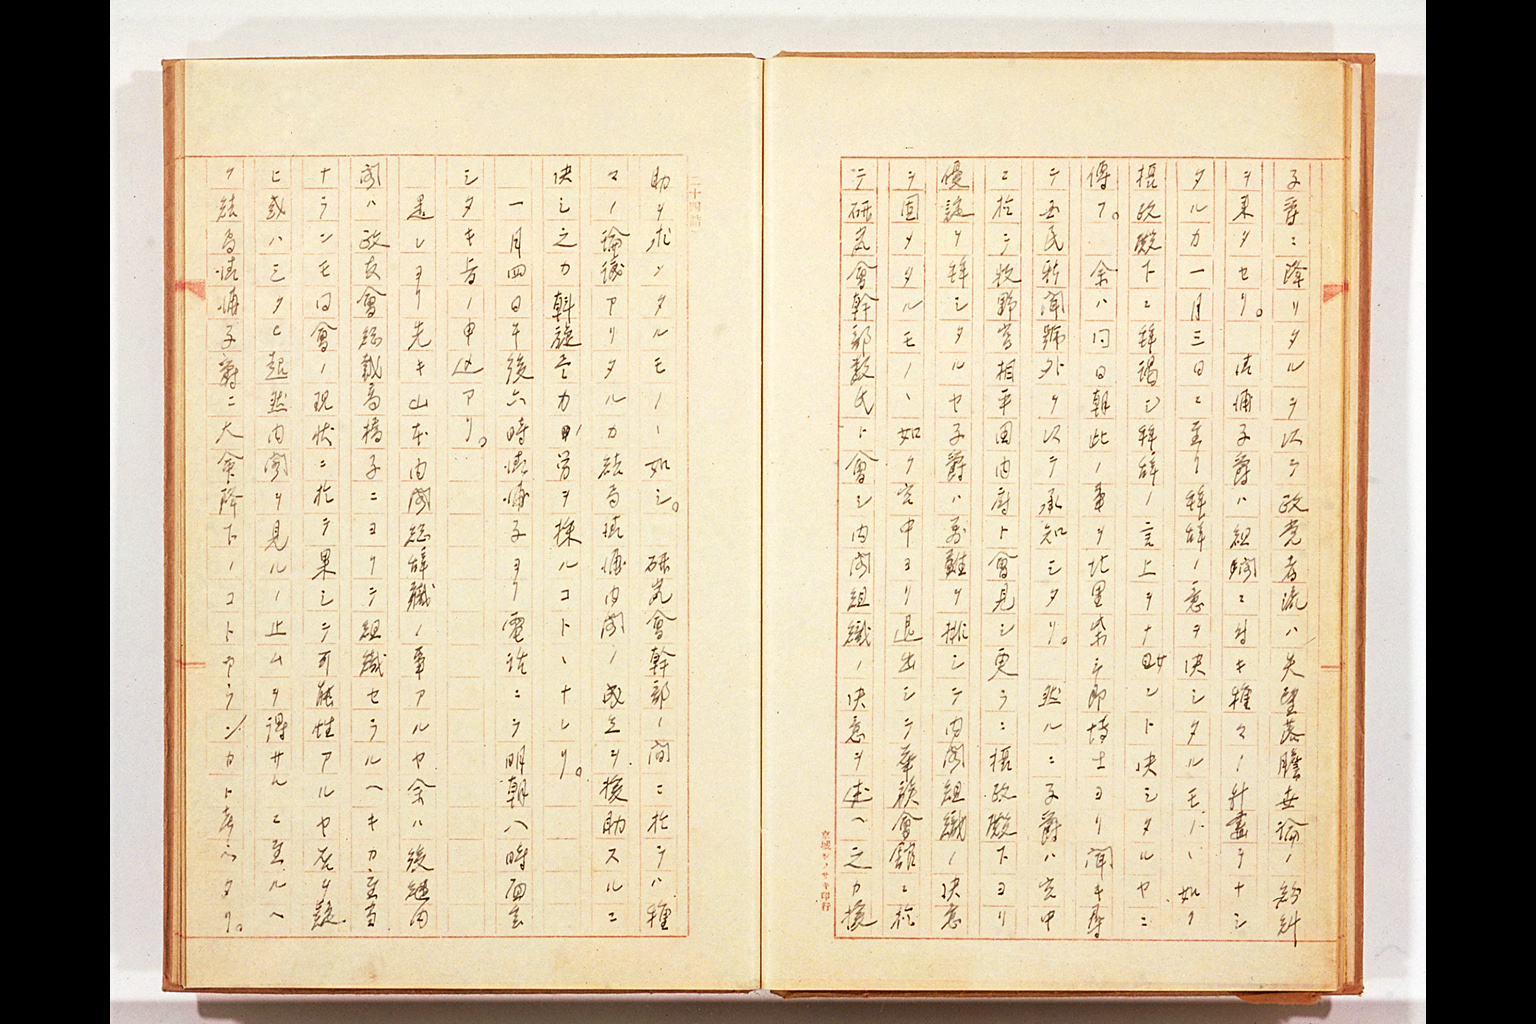 子爵ニ降リタルヲ以テ政党者流ハ失望落膽世論ノ紛糾
ヲ来タセリ。 清浦子爵ハ組閣ニ付キ種々ノ計畫ヲナシ
タルカ一月三日ニ至リ拜辞ノ意ヲ决シタルモノヽ如ク
摂政殿下ニ拜謁シ拜辞ノ言上ヲナサントシタルヤニ
傳フ。 余ハ同日朝此ノ事ヲ北里柴三郎博士ヨリ聞キ尋
テ国民新聞號外ヲ以テ承知シタリ。 然ルニ子爵ハ宮中
ニ於テ牧野宮相平田内府ト會見シ更ラニ摂政殿下ヨリ
優諚ヲ拜シタルヤ子爵ハ萬難ヲ排シテ内閣組織ノ决意
ヲ固メタルモノヽ如ク宮中ヨリ退出シテ華族會館ニ於
テ研究會幹部数氏ト會シ内閣組織ノ决意ヲ述ヘ之カ援
京城サノサキ印行
助ヲ求メタルモノヽ如シ。 研究會幹部ノ間ニ於テハ種
々ノ論議アリタルカ結局清浦内閣ノ成立ヲ援助スルニ
决シ之カ斡旋盡力ノ労ヲ採ルコトヽナレリ。
一月四日午後六時清浦子ヨリ電話ニテ明朝八時面会
シタキ旨ノ申込アリ。
是レヨリ先キ山本内閣総辞職ノ事アルヤ余ハ後継内
閣ハ政友會総裁高橋子ニヨリテ組織セラルヘキカ至当
ナランモ同會ノ現状ニ於テ果シテ可能性アルヤ否ヤ疑
ヒ或ハ三タヒ超然内閣ヲ見ルノ止ムヲ得サルニ至ルヘ
ク結局清浦子爵ニ大命降下ノコトヤランカト考ヘタリ。